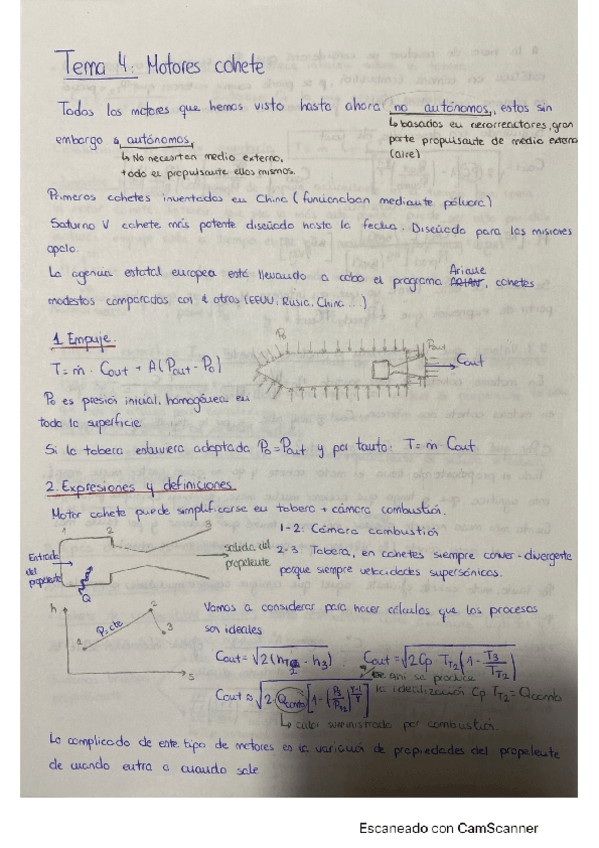 Tema 4: Motores cohete
Todos los motores que hemos visto hasta ahora no autónomos, estos sin
↳ basados en aerorreactores, gran
embargo s autónomos, parte propulsante de medio externo
↳ No necesitan medio externo, (aire)
todo el propulsante ellos mismos.
Primeros cohetes inventados en China (funcionaban mediante pólvora)
Saturno V cohete más potente diseñado hasta la fecha. Diseñado para las misiones
apolo.
La agencia estatal europea está llevando a cabo el programa Ariane, cohetes
modestos comparados con otros (EEUU, Rusia, China...)
1. Empuje.
P₀ Pout
T = ṁ · Cout + A(Pout - P₀) Cout
P₀ es presión inicial, homogénea en
toda la superficie
Si la tobera estuviera adaptada P₀ = Pout y por tanto: T = ṁ Cout
2. Expresiones y definiciones
Motor cohete puede simplificarse en tobera + cámara combustión.
1 2 3 1-2: Cámara combustión
Entrada del propelente salida del propelente 2-3: Tobera, en cohetes siempre conver-divergente
Q porque siempre velocidades supersónicas.
h P=cte 1 2 3 s
Vamos a considerar para hacer cálculos que los procesos
son ideales
Cout = √2(hT2 - h3) Cout = √2 Cp TT2 (1 - T3/TT2)
De ahí se produce
Cout ≈ √2 Qcomb [1 - (P3/PT2)^(γ-1/γ)] la idealización Cp TT2 = Qcomb
↳ calor suministrado por combustión.
Lo complicado de este tipo de motores es la variación de propiedades del propelente
de cuando entra a cuando sale
Escaneado con CamScanner